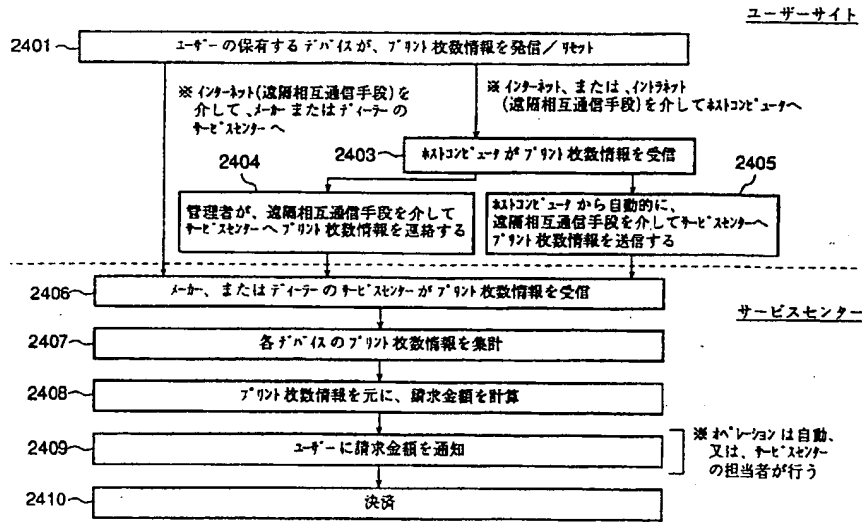 ユーザーサイト
2401
ユーザーの保有するデバイスが、プリント枚数情報を発信/リセット
※インターネット(遠隔相互通信手段)を
介して、メーカーまたはディーラーの
サービスセンターへ
※インターネット、または、イントラネット
(遠隔相互通信手段)を介してホストコンピュータへ
2403
ホストコンピュータがプリント枚数情報を受信
2404
管理者が、遠隔相互通信手段を介して
サービスセンターへプリント枚数情報を連絡する
2405
ホストコンピュータから自動的に、
遠隔相互通信手段を介してサービスセンターへ
プリント枚数情報を送信する
2406
メーカー、またはディーラーのサービスセンターがプリント枚数情報を受信
サービスセンター
2407
各デバイスのプリント枚数情報を集計
2408
プリント枚数情報を元に、請求金額を計算
2409
ユーザーに請求金額を通知
※オペレーションは自動、
又は、サービスセンター
の担当者が行う
2410
決済